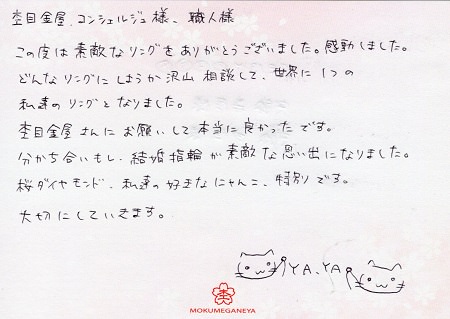 杢目金屋、コンシェルジュ様、職人様
この度は素敵なリングをありがとうございました。感動しました。
どんなリングにしようか沢山相談して、世界に1つの
私達のリングとなりました。
杢目金屋さんにお願いして本当に良かったです。
分かち合いもし、結婚指輪が素敵な思い出になりました。
桜ダイヤモンド、私達の好きなにゃんこ、特別です。
大切にしていきます。
YA.YA
MOKUMEGANEYA